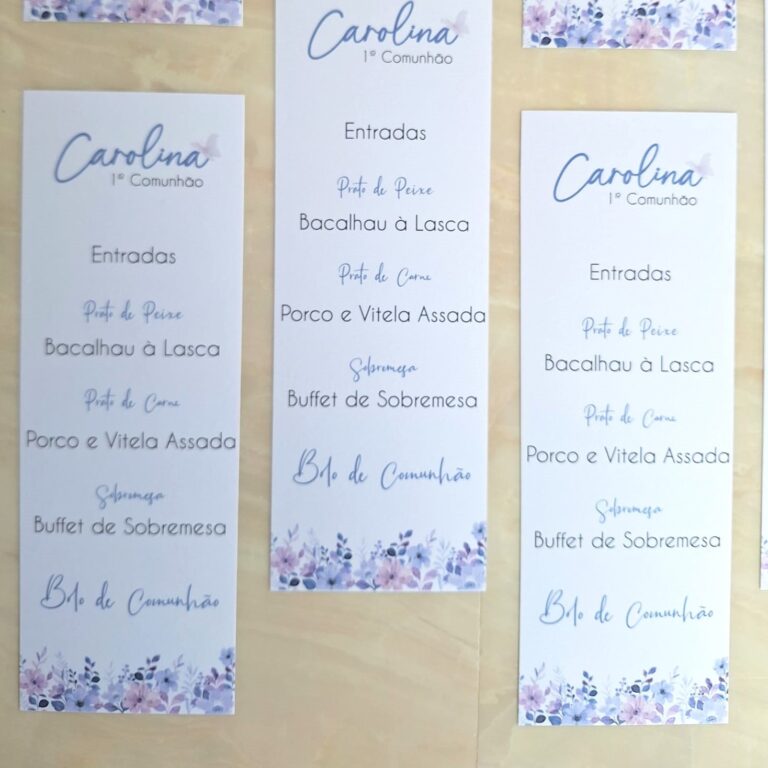 Carolina
1ª Comunhão
Entradas
Prato de Peixe
Bacalhau à Lasca
Prato de Carne
Porco e Vitela Assada
Sobremesa
Buffet de Sobremesa
Bolo de Comunhão
Carolina
1ª Comunhão
Entradas
Prato de Peixe
Bacalhau à Lasca
Prato de Carne
Porco e Vitela Assada
Sobremesa
Buffet de Sobremesa
Bolo de Comunhão
Carolina
1ª Comunhão
Entradas
Prato de Peixe
Bacalhau à Lasca
Prato de Carne
Porco e Vitela Assada
Sobremesa
Buffet de Sobremesa
Bolo de Comunhão